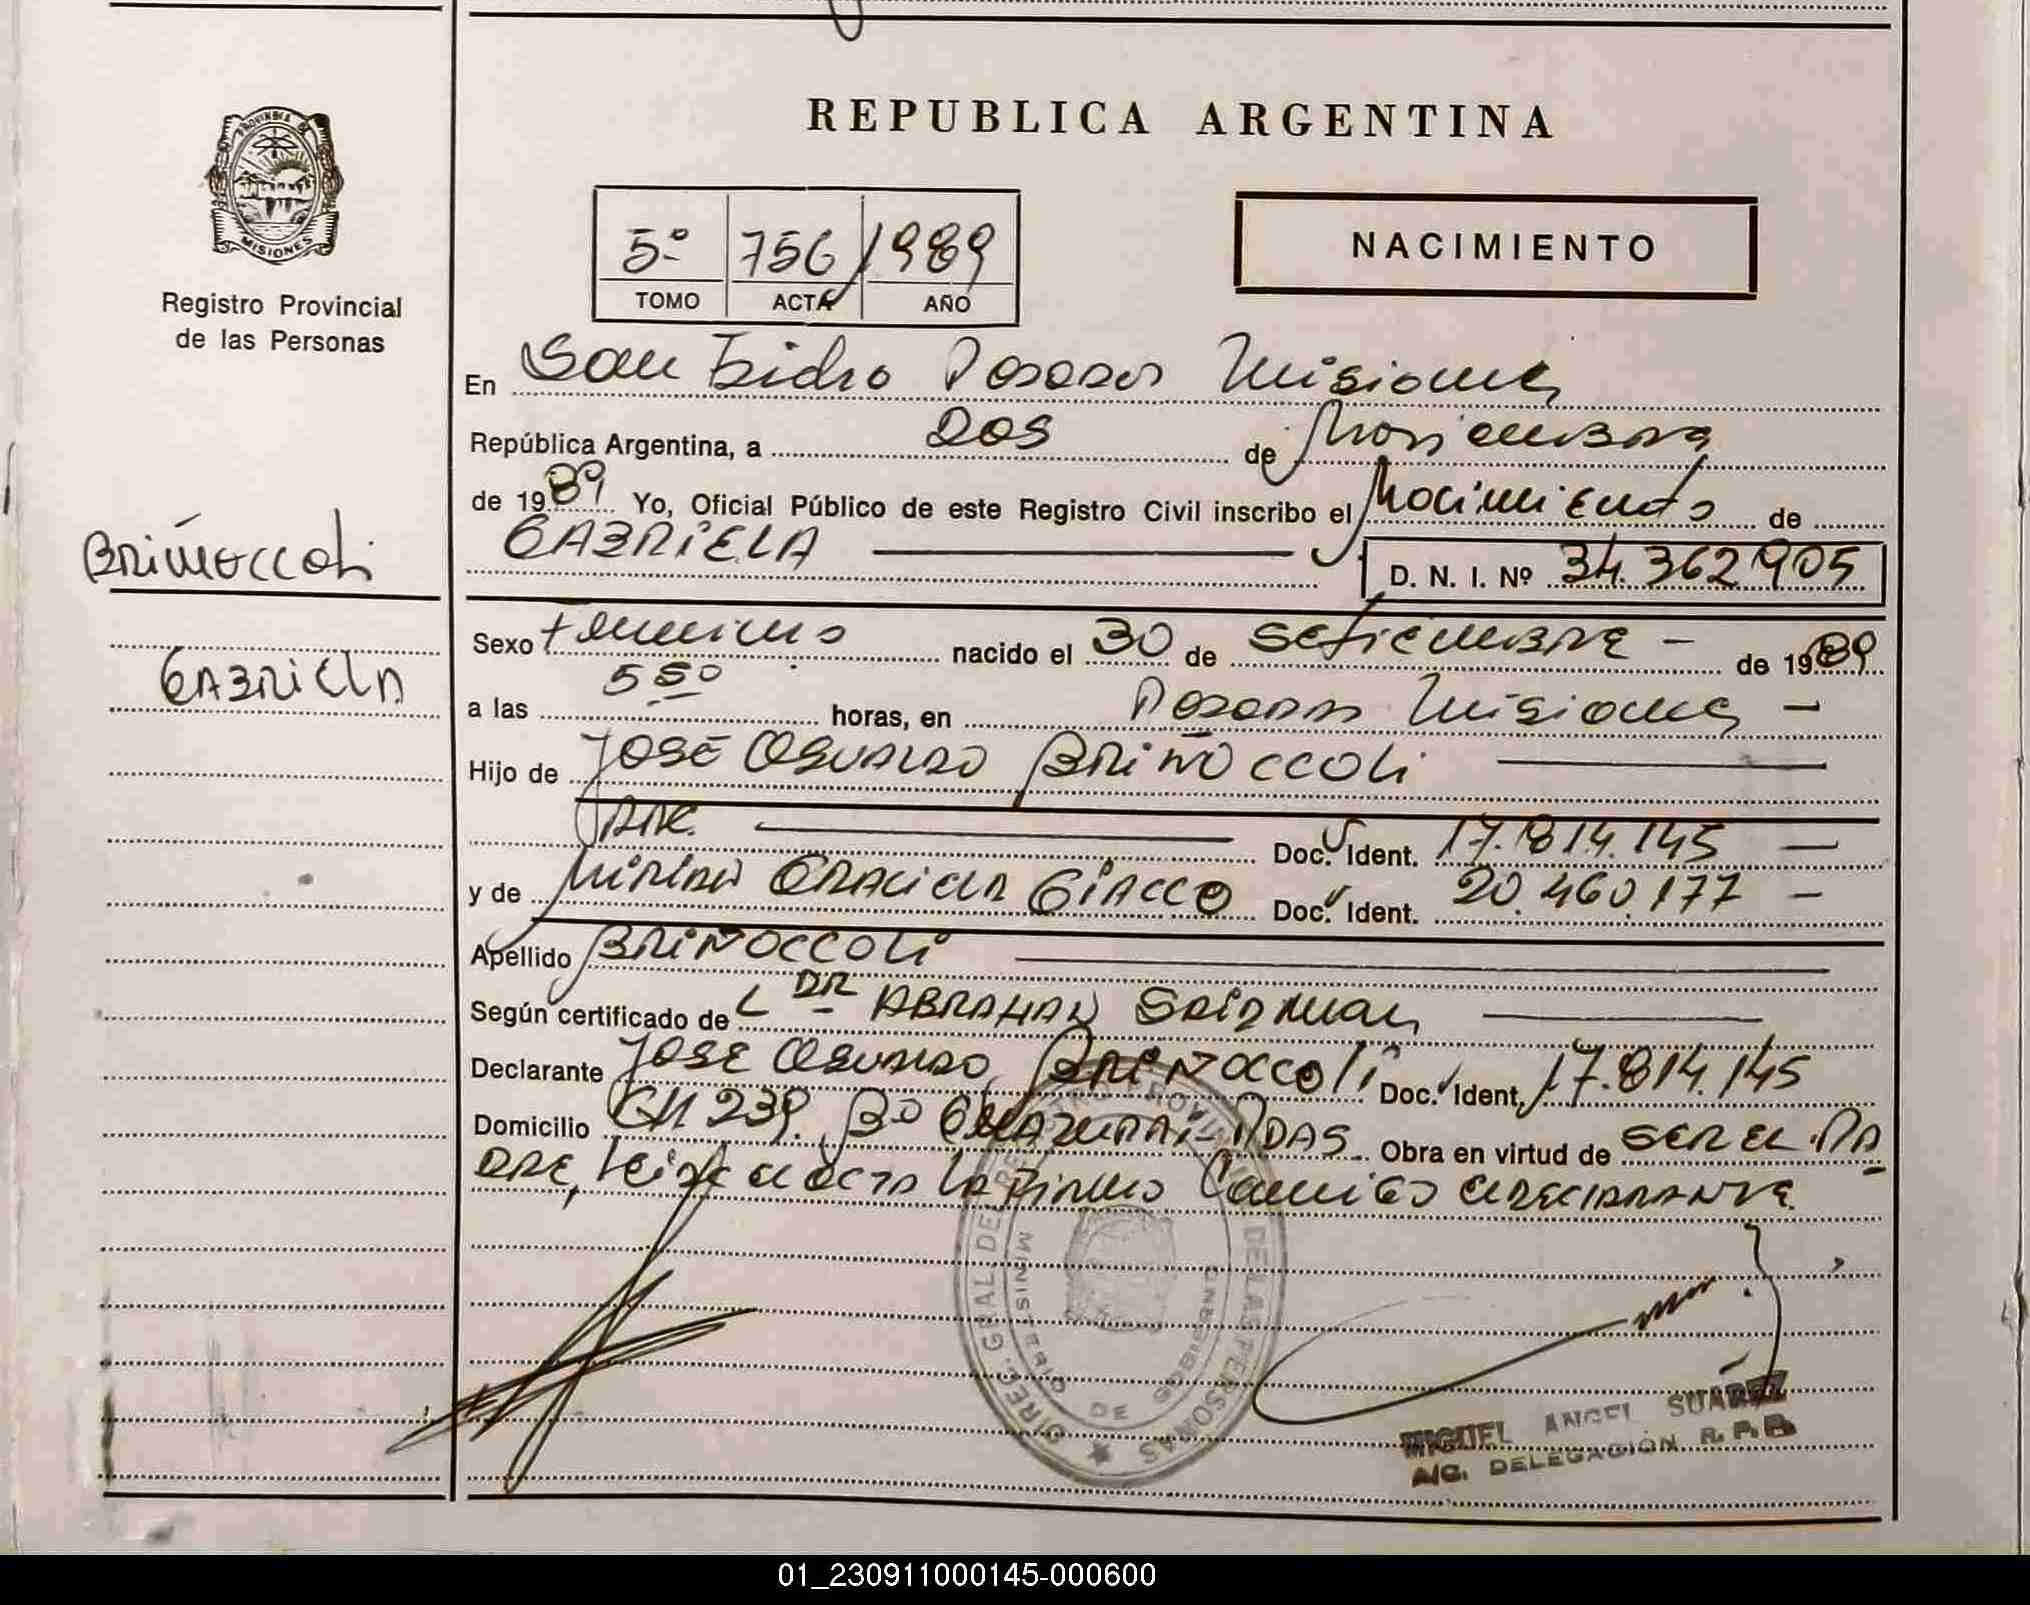 REPUBLICA ARGENTINA
PROVINCIA DE
MISIONES
Registro Provincial
de las Personas
5º 756 1989
TOMO ACTA AÑO
NACIMIENTO
En San Isidro Posadas Misiones
República Argentina, a Dos de Noviembre
de 1989 Yo, Oficial Público de este Registro Civil inscribo el Nacimiento de
GABRIELA
D. N. I. Nº 34.362.905
BRIÑOCCOLI
GABRIELA
Sexo Femenino nacido el 30 de SETIEMBRE - de 1989
a las 5 50 horas, en Posadas Misiones -
Hijo de JOSÉ OSVALDO BRIÑOCCOLI
Doc. Ident. 17.814.145 -
y de MIRIAN GRACIELA GIACCO Doc. Ident. 20.460.177 -
Apellido BRIÑOCCOLI
Según certificado de L DR ABRAHAN
Declarante JOSE OSVALDO BRIÑOCCOLI Doc. Ident. 17.814.145
Domicilio CH 239. Bº PDAS. Obra en virtud de SER EL PA
DRE, Leída el acta la firmo conmigo el DECLARANTE
DIREC. GRAL DE REGISTRO PROVINCIAL DE LAS PERSONAS
MINISTERIO DE GOBIERNO
MIGUEL ANGEL SUÁREZ
A/C. DELEGACIÓN R. P. P.
01_230911000145-000600